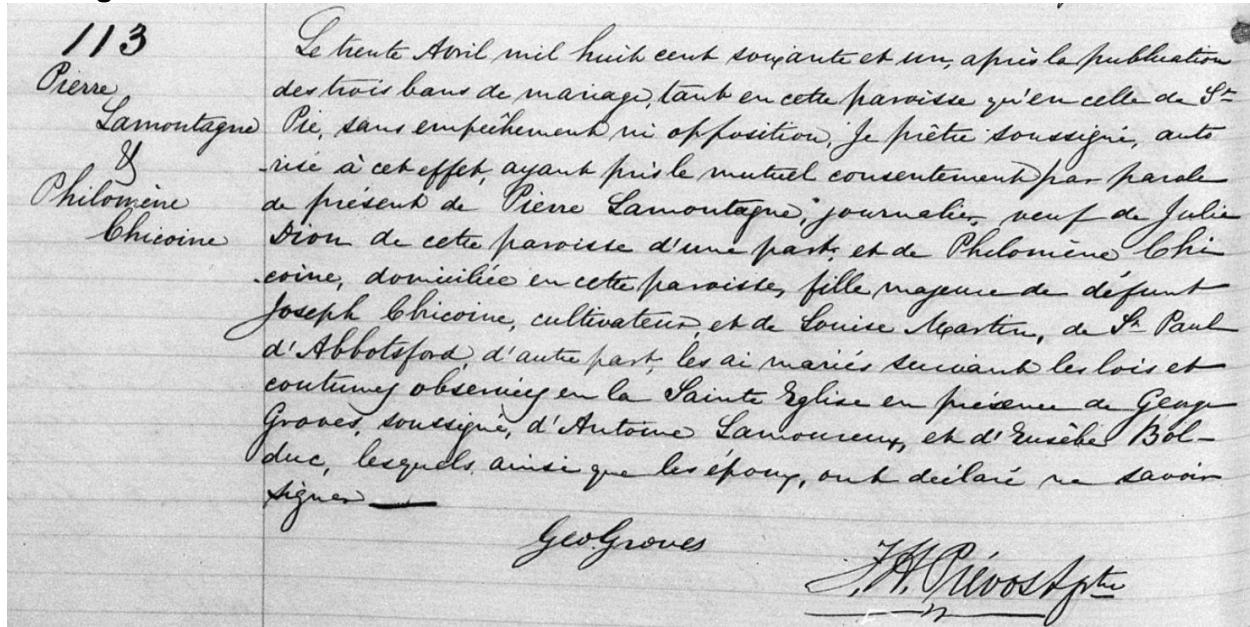 113
Pierre
Lamontagne
&
Philomène
Chicoine
Le trente Avril mil huit cent soixante et un, après la publication
des trois bans de mariage, tant en cette paroisse qu'en celle de St
Pie, sans empêchement ni opposition, Je prêtre soussigné, auto
-risé à cet effet, ayant pris le mutuel consentement par parole
de présent de Pierre Lamontagne, journalier, veuf de Julie
Dion de cette paroisse d'une part, et de Philomène Chi
-coine, domiciliée en cette paroisse, fille majeure de défunt
Joseph Chicoine, cultivateur, et de Louise Martin, de St Paul
d'Abbotsford, d'autre part, les ai mariés suivant les lois et
coutumes observées en la Sainte Eglise en présence de George
Groves, soussigné, d'Antoine Lamoureux, et d'Eusèbe Bol-
duc, lesquels, ainsi que les époux, ont déclaré ne savoir
signer —
Geo. Groves
J. A. Prévost ptre